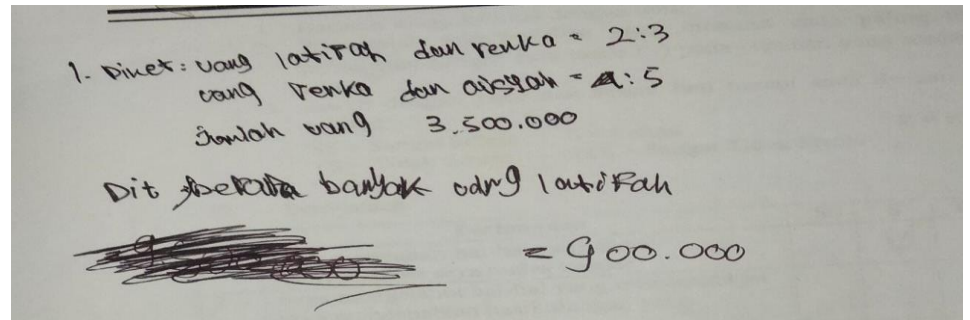 1. Diket: uang latifah dan renka = 2:3
uang renka dan aisyah = 4:5
Jumlah uang 3.500.000
Dit berapa banyak uang latifah
= 900.000